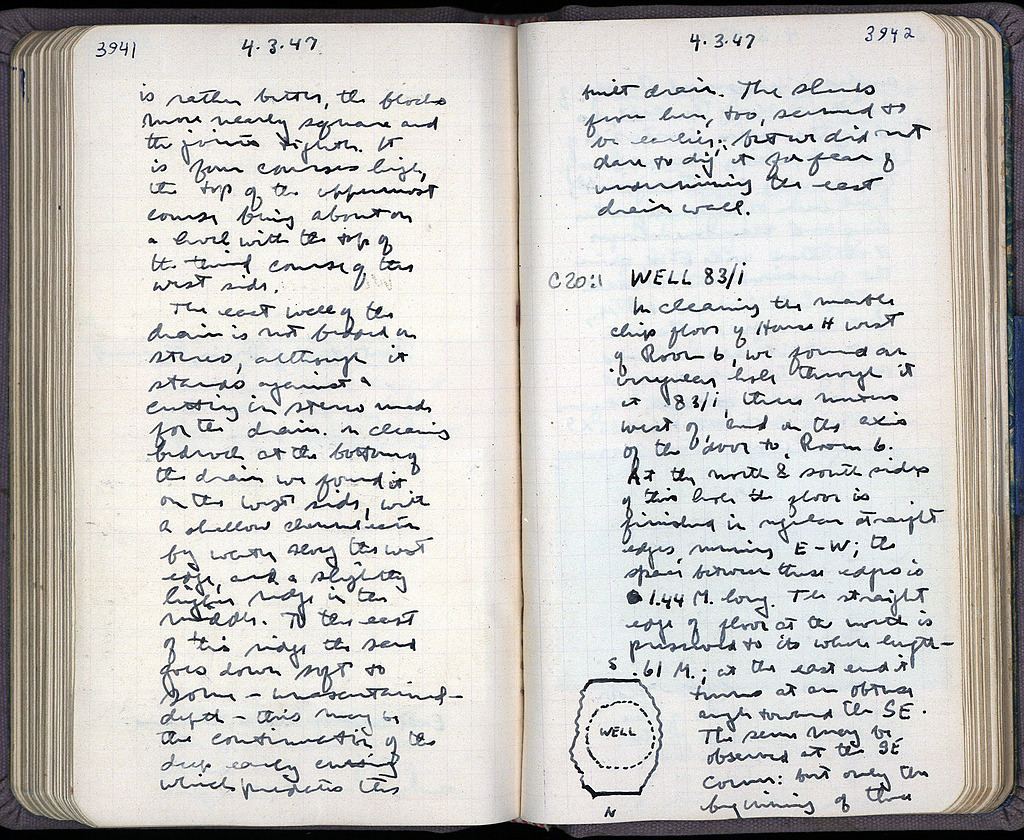 3941
4.3.47
is rather better, the blocks
more nearly square and
the joints tighter. It
is four courses high,
the top of the uppermost
course being about on
a level with the top of
the third course of the
west side.
The east wall of the
drain is not bedded on
stereo, although it
stands against a
cutting in stereo made
for the drain. In cleaning
bedrock at the bottom of
the drain we found it
on the west side, with
a shallow channel
by water along the west
edge, and a slightly
higher ridge in the
middle. To the east
of this ridge the sand
goes down soft to
some - unascertained -
depth - this may be
the continuation of the
deep early cutting
which predates this
4.3.47
3942
built drain. The sherds
from here, too, seemed to
be earlier; but we did not
dare to dig it for fear of
undermining the east
drain wall.
C20:1 WELL 83/Ι
In cleaning the marble
chip floor of House H west
of Room 6, we found an
irregular hole through it
at 83/Ι, three meters
west of, and on the axis
of the door to, Room 6.
At the north & south sides
of this hole the floor is
finished in regular straight
edges running E-W; the
space between these edges is
1.44 M. long. The straight
edge of floor at the north is
preserved to its whole length -
.61 M.; at the east end it
turns at an obtuse
angle toward the SE.
The same may be
observed at the SE
corner: but only the
beginning of these
S
WELL
N